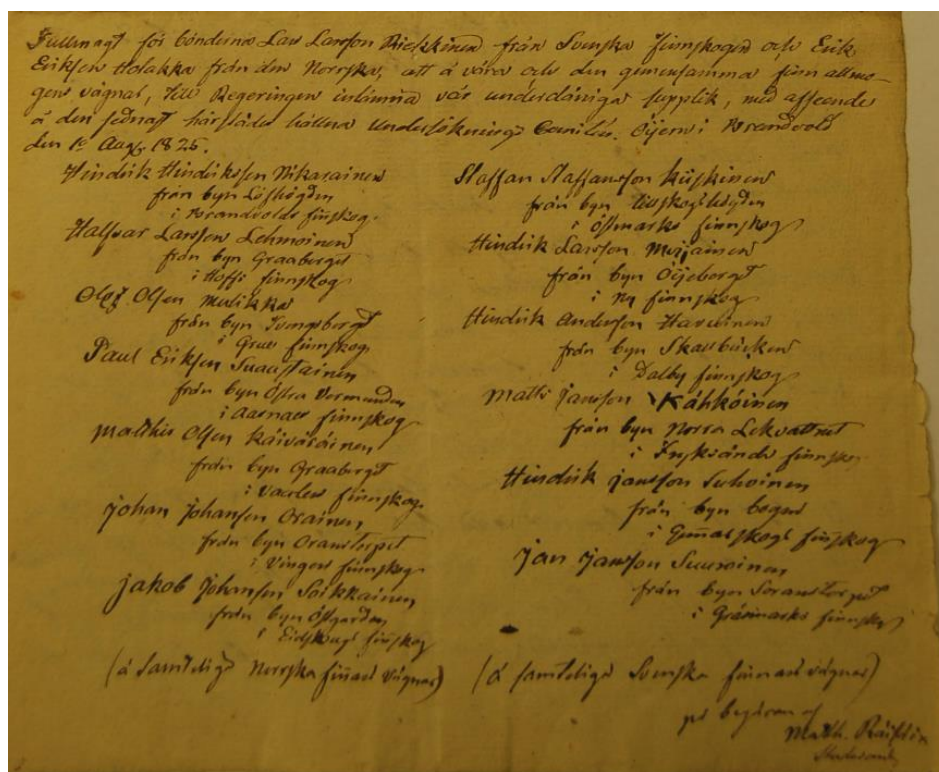 Fullmagt för bönderna Lars Larsson Piekkinen från Svenska finnskogen och Erik
Eriksen Holakka från den Norrska, att å våra och den gemensamma finn allmo-
gens vägnar, till Regeringen inlämna vår underdåniga supplik, med afseende
å den sednast härstädes hållna Undersöknings Comitén. Öijern i Brandvold
den 1e Aug. 1826.
Hindrik Hindriksen Pikarainen
från byn Löfhögden
i Brandvolds finnskog.
Halfvar Larssen Lehmoinen
från byn Graaberget
i Hoffs finnskog
Olof Olsen Mulikka
från byn Tvengsberget
i Grues finnskog
Paul Eriksen Suaustainen
från byn Östra Vermunden
i Aasnæs finnskog
Matthis Olsen Räisäinen
från byn Graaberget
i Vaalers finnskog.
Johan Johansen Orainen
från byn Oranstorpet
i Vingers finnskog
Jakob Johansen Soikkainen
från byn Östgarden
i Eidskougs finskog
(å samteliga Norrska finnars vägnar)
Staffan Staffansson Kiiskinen
från byn högden
i Östmarks finnskog
Hindrik Larsson Moijainen
från byn Öijeberget
i Ny finnskog
Hindrik Andersson Havuinen
från byn Skallbäcken
i Dalby finnskog
Matts Jansson Kähköinen
från byn Norra Lekvattnet
i Fryksände finnskog
Hindrik Jansson Suhoinen
från byn bogen
i Gunnarskogs finskog
Jan Jansson Suuroinen
från byn Soranstorpet
i Gräsmarks finnskog
(å samteliga Svenska finnars vägnar)
på begäran af
Math.